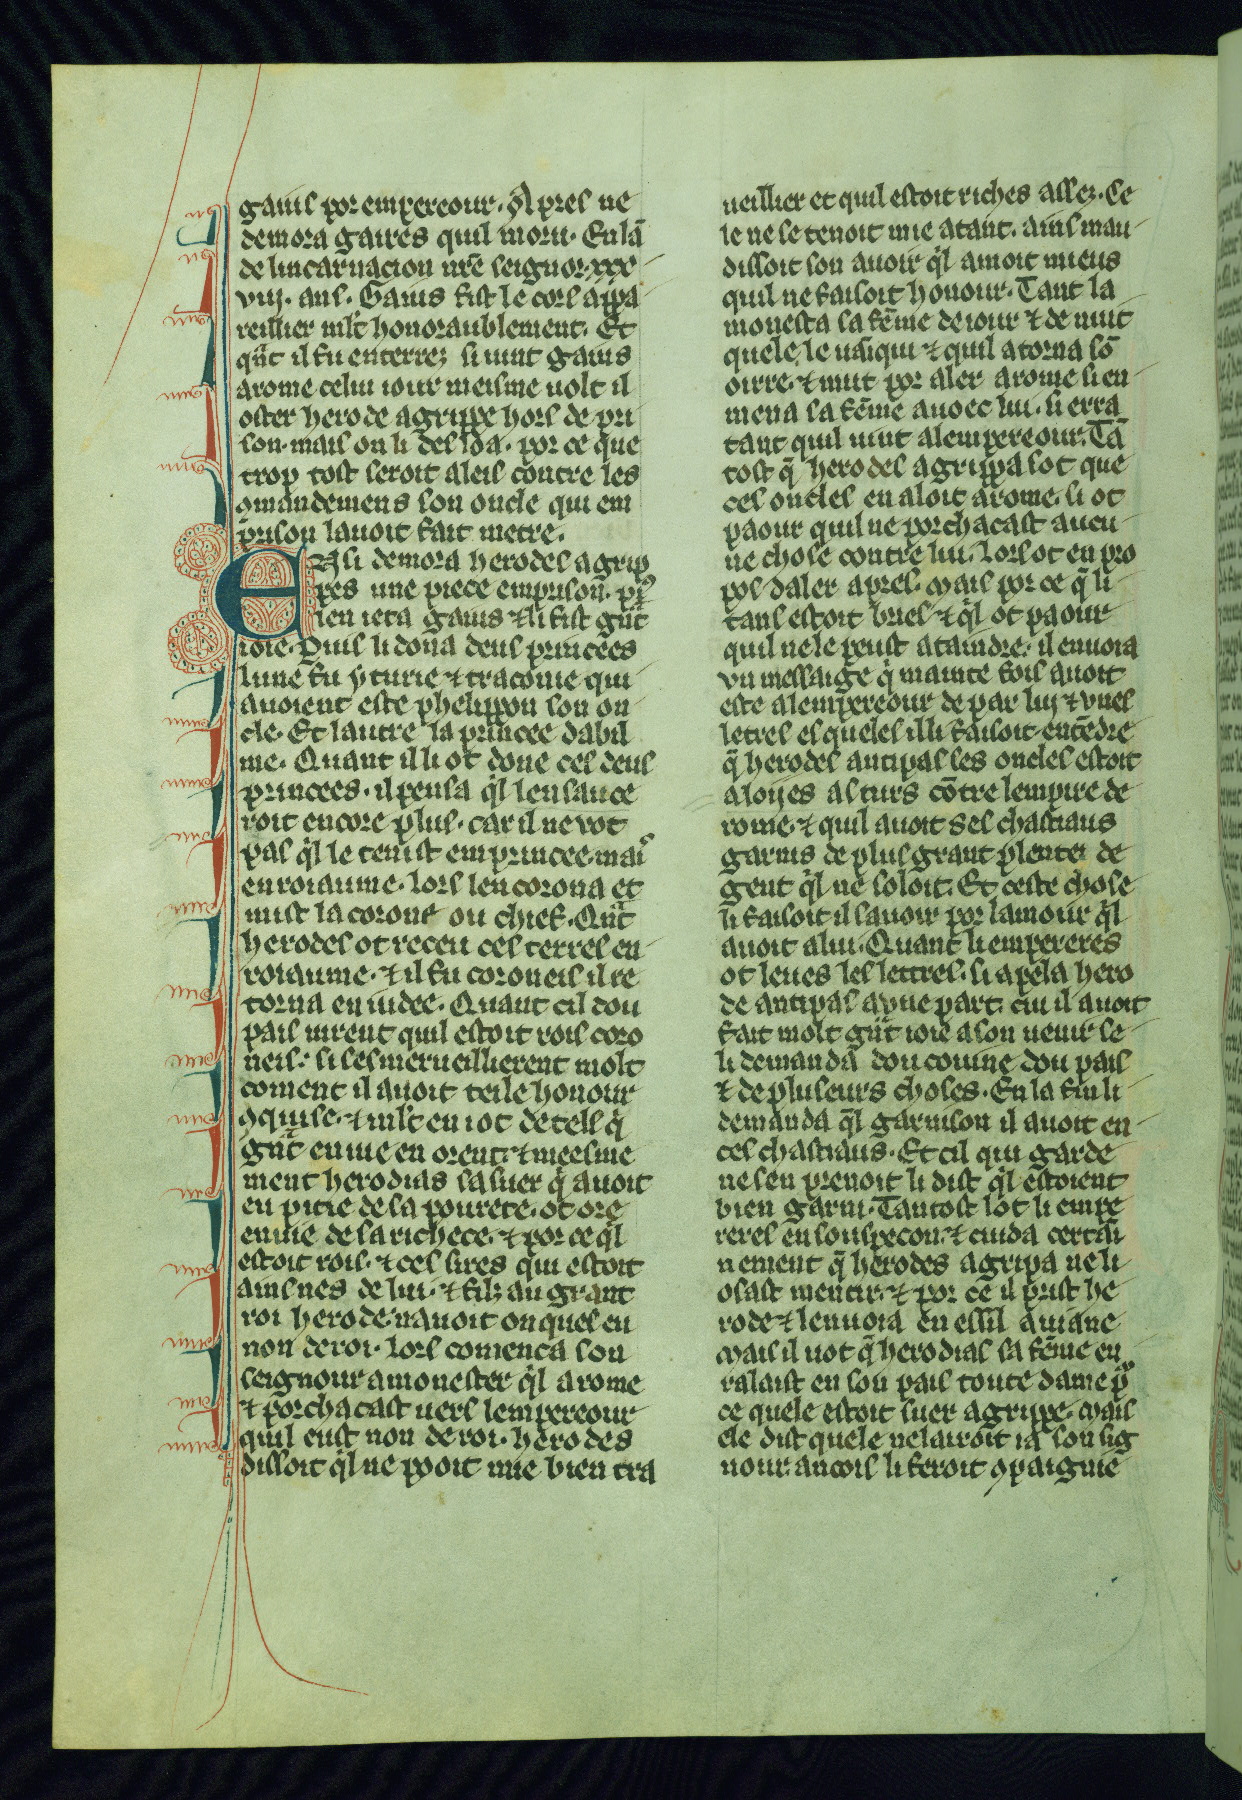 gaius por empereour. Apres ne
demora gaires quil moru. En lā
de lincarnacion nr̄e seignor .xxx
viij. ans. Gaius fist le cors apa
reillier ml't honoraublement. Et
qn̄t il fu enterrez si uint gaius
a rome celui iour meisme uolt il
oster herode agrippe hors de pri
son. mais on li desloa. por ce que
trop tost seroit aleis contre les
ꝯmandemens son oncle qui em
prison lauoit fait metre.
Ensi demora herodes agrip
pes une piece em prison. p9
len ieta gaius ⁊ li fist gn̄t
ioie. Puis li dona deus princees
lune fu yturie ⁊ traconie qui
auoient este phelippon son on
cle. Et lautre la princee dabil
me. Quant il li ot done ces deus
princees. il pensa q̄l len sauce
roit encore plus. car il ne vot
pas q̄l le tenist em princee. mais
en roiaume. lors len corona et
mist la corone ou chief. Qn̄t
herodes ot receu ces terres en
roiaume. ⁊ il fu coroneis il re
torna en iudee. Quant cil dou
pais uirent quil estoit rois coro
neis. si sesmerueillierent molt
coment il auoit teile honour
ꝯquise. ⁊ ml't en iot de tels q̄
gn̄t enuie en orent. ⁊ meesme
ment herodias sa suer q̄ auoit
eu pitie de sa pourete. ot ore
enuie de sa richece. ⁊ por ce q̄l
estoit rois. ⁊ ces sires qui estoit
ains nes de lui. ⁊ filz au grant
roi herode. nauoit onques eu
non de roi. lors comenca son
seignour amonester q̄l a rome
⁊ porchacast uers lempereour
quil eust non de roi. herodes
dissoit q̄l ne pooit mie bien tra
ueillier et quil estoit riches assez. Ce
le ne se tenoit mie atant. ains mau
dissoit son auoir q̄l amoit mieus
quil ne faisoit honour. Tant la
monesta sa fēme de iour ⁊ de nuit
quele le uaīqui ⁊ quil atorna sō
oirre. ⁊ mut por aler a rome si en
mena sa fēme auoec lui. si erra
tant quil uint a lempereour. Tā
tost q̄ herodes agrippa sot que
ces oncles en aloit a rome. si ot
paour quil ne porchacast aucu
ne chose contre lui. lors ot en pro
pos daler apres. mais por ce q̄ li
tans estoit bries ⁊ q̄l ot paour
quil ne le peust ataindre. il enuoia
vn messaige q̄ mainte fois auoit
este a lempereour de par lui ⁊ vnes
letres esqueles il li faisoit entēdre
q̄ herodes antipas ses oncles estoit
aloijes as turs cōtre lempire de
rome. ⁊ quil auoit ses chastiaus
garnis de plus grant plentei de
gent q̄l ne soloit. Et ceste chose
li faisoit il sauoir por lamour q̄l
auoit a lui. Quant li empereres
ot leues les lettres. si apela hero
de antipas a vne part. cui il auoit
fait molt gn̄t ioie a son uenir se
li demanda dou couine dou pais
⁊ de pluseurs choses. En la fin li
demanda q̄l garnison il auoit en
ces chastiaus. Et cil qui garde
ne sen prenoit li dist q̄l estoient
bien garni. Tantost lot li empe
reres en souspecon. ⁊ cuida certai
nement q̄ herodes agripa ne li
osast mentir. ⁊ por ce il prist he
rode ⁊ lenuoia en essil a uiane
Mais il uot q̄ herodias sa fēme en
ralaist en son pais toute dame p̄
ce quele estoit suer agrippe. Mais
ele dist quele ne lairoit ia son sig
nour ancois li feroit ꝯpaignie